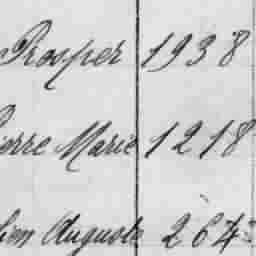 Prosper 1938
Pierre Marie 1218
Auguste 264